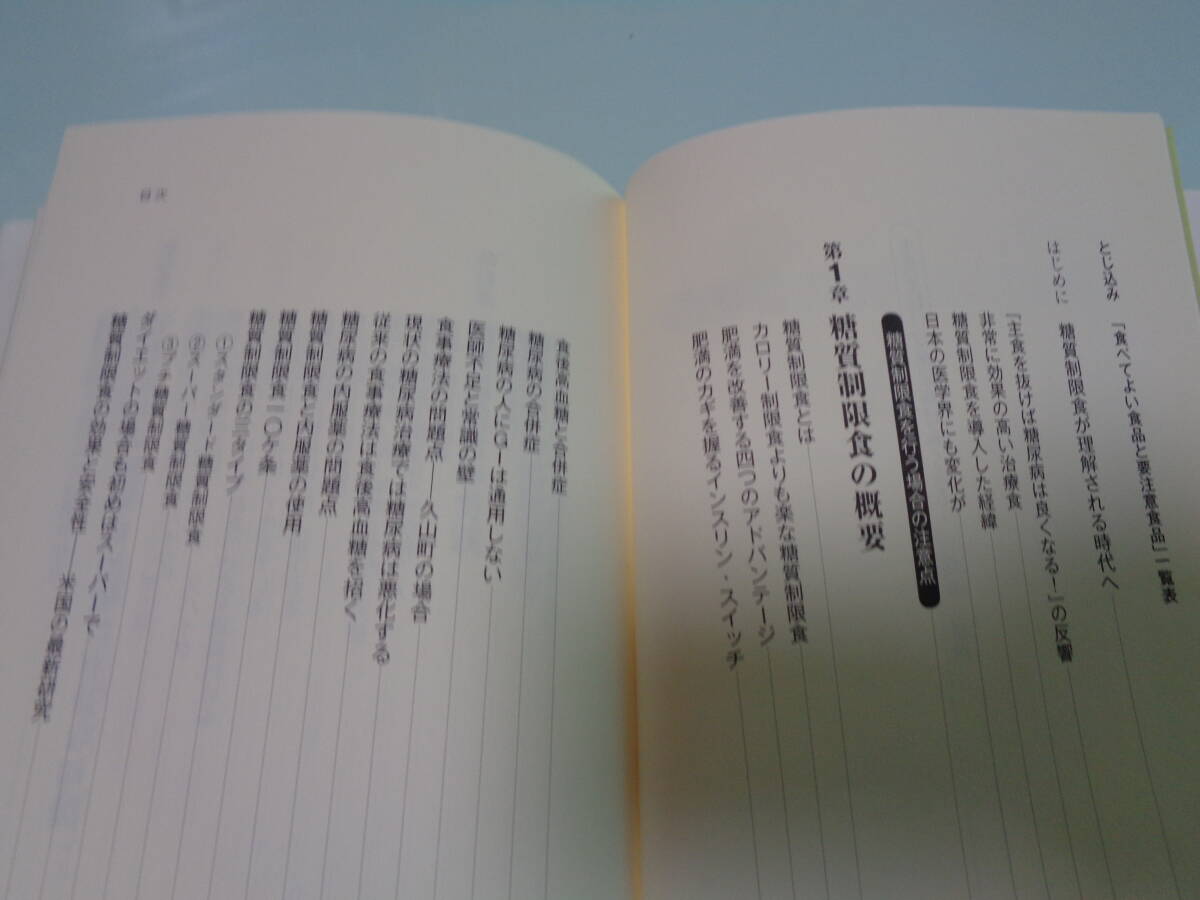 とじ込み 『食べてよい食品と要注意食品』一覧表
はじめに 糖質制限食が理解される時代へ
『主食を抜けば糖尿病は良くなる！』の反響
非常に効果の高い治療食
糖質制限食を導入した経緯
日本の医学界にも変化が
糖質制限食を行う場合の注意点
第1章 糖質制限食の概要
糖質制限食とは
カロリー制限食よりも楽な糖質制限食
肥満を改善する四つのアドバンテージ
肥満のカギを握るインスリン・スイッチ
目次
食後高血糖と合併症
糖尿病の合併症
糖尿病の人にGIは通用しない
医師不足と常識の壁
食事療法の問題点——久山町の場合
現状の糖尿病治療では糖尿病は悪化する
従来の食事療法は食後高血糖を招く
糖尿病の内服薬の問題点
糖質制限食と内服薬の使用
糖質制限食一〇カ条
糖質制限食の三タイプ
①スタンダード糖質制限食
②スーパー糖質制限食
③プチ糖質制限食
ダイエットの場合も初めはスーパーで
糖質制限食の効果と安全性——米国の最新研究